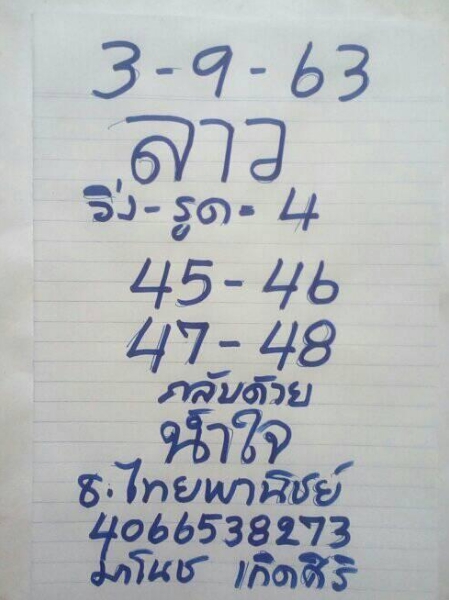 3-9-63
ลาว
วิ่ง-รูด=4
45-46
47-48
กลับด้วย
น้ำใจ
ธ.ไทยพานิชย์
4066538273
มาโนช เกิดศิริ